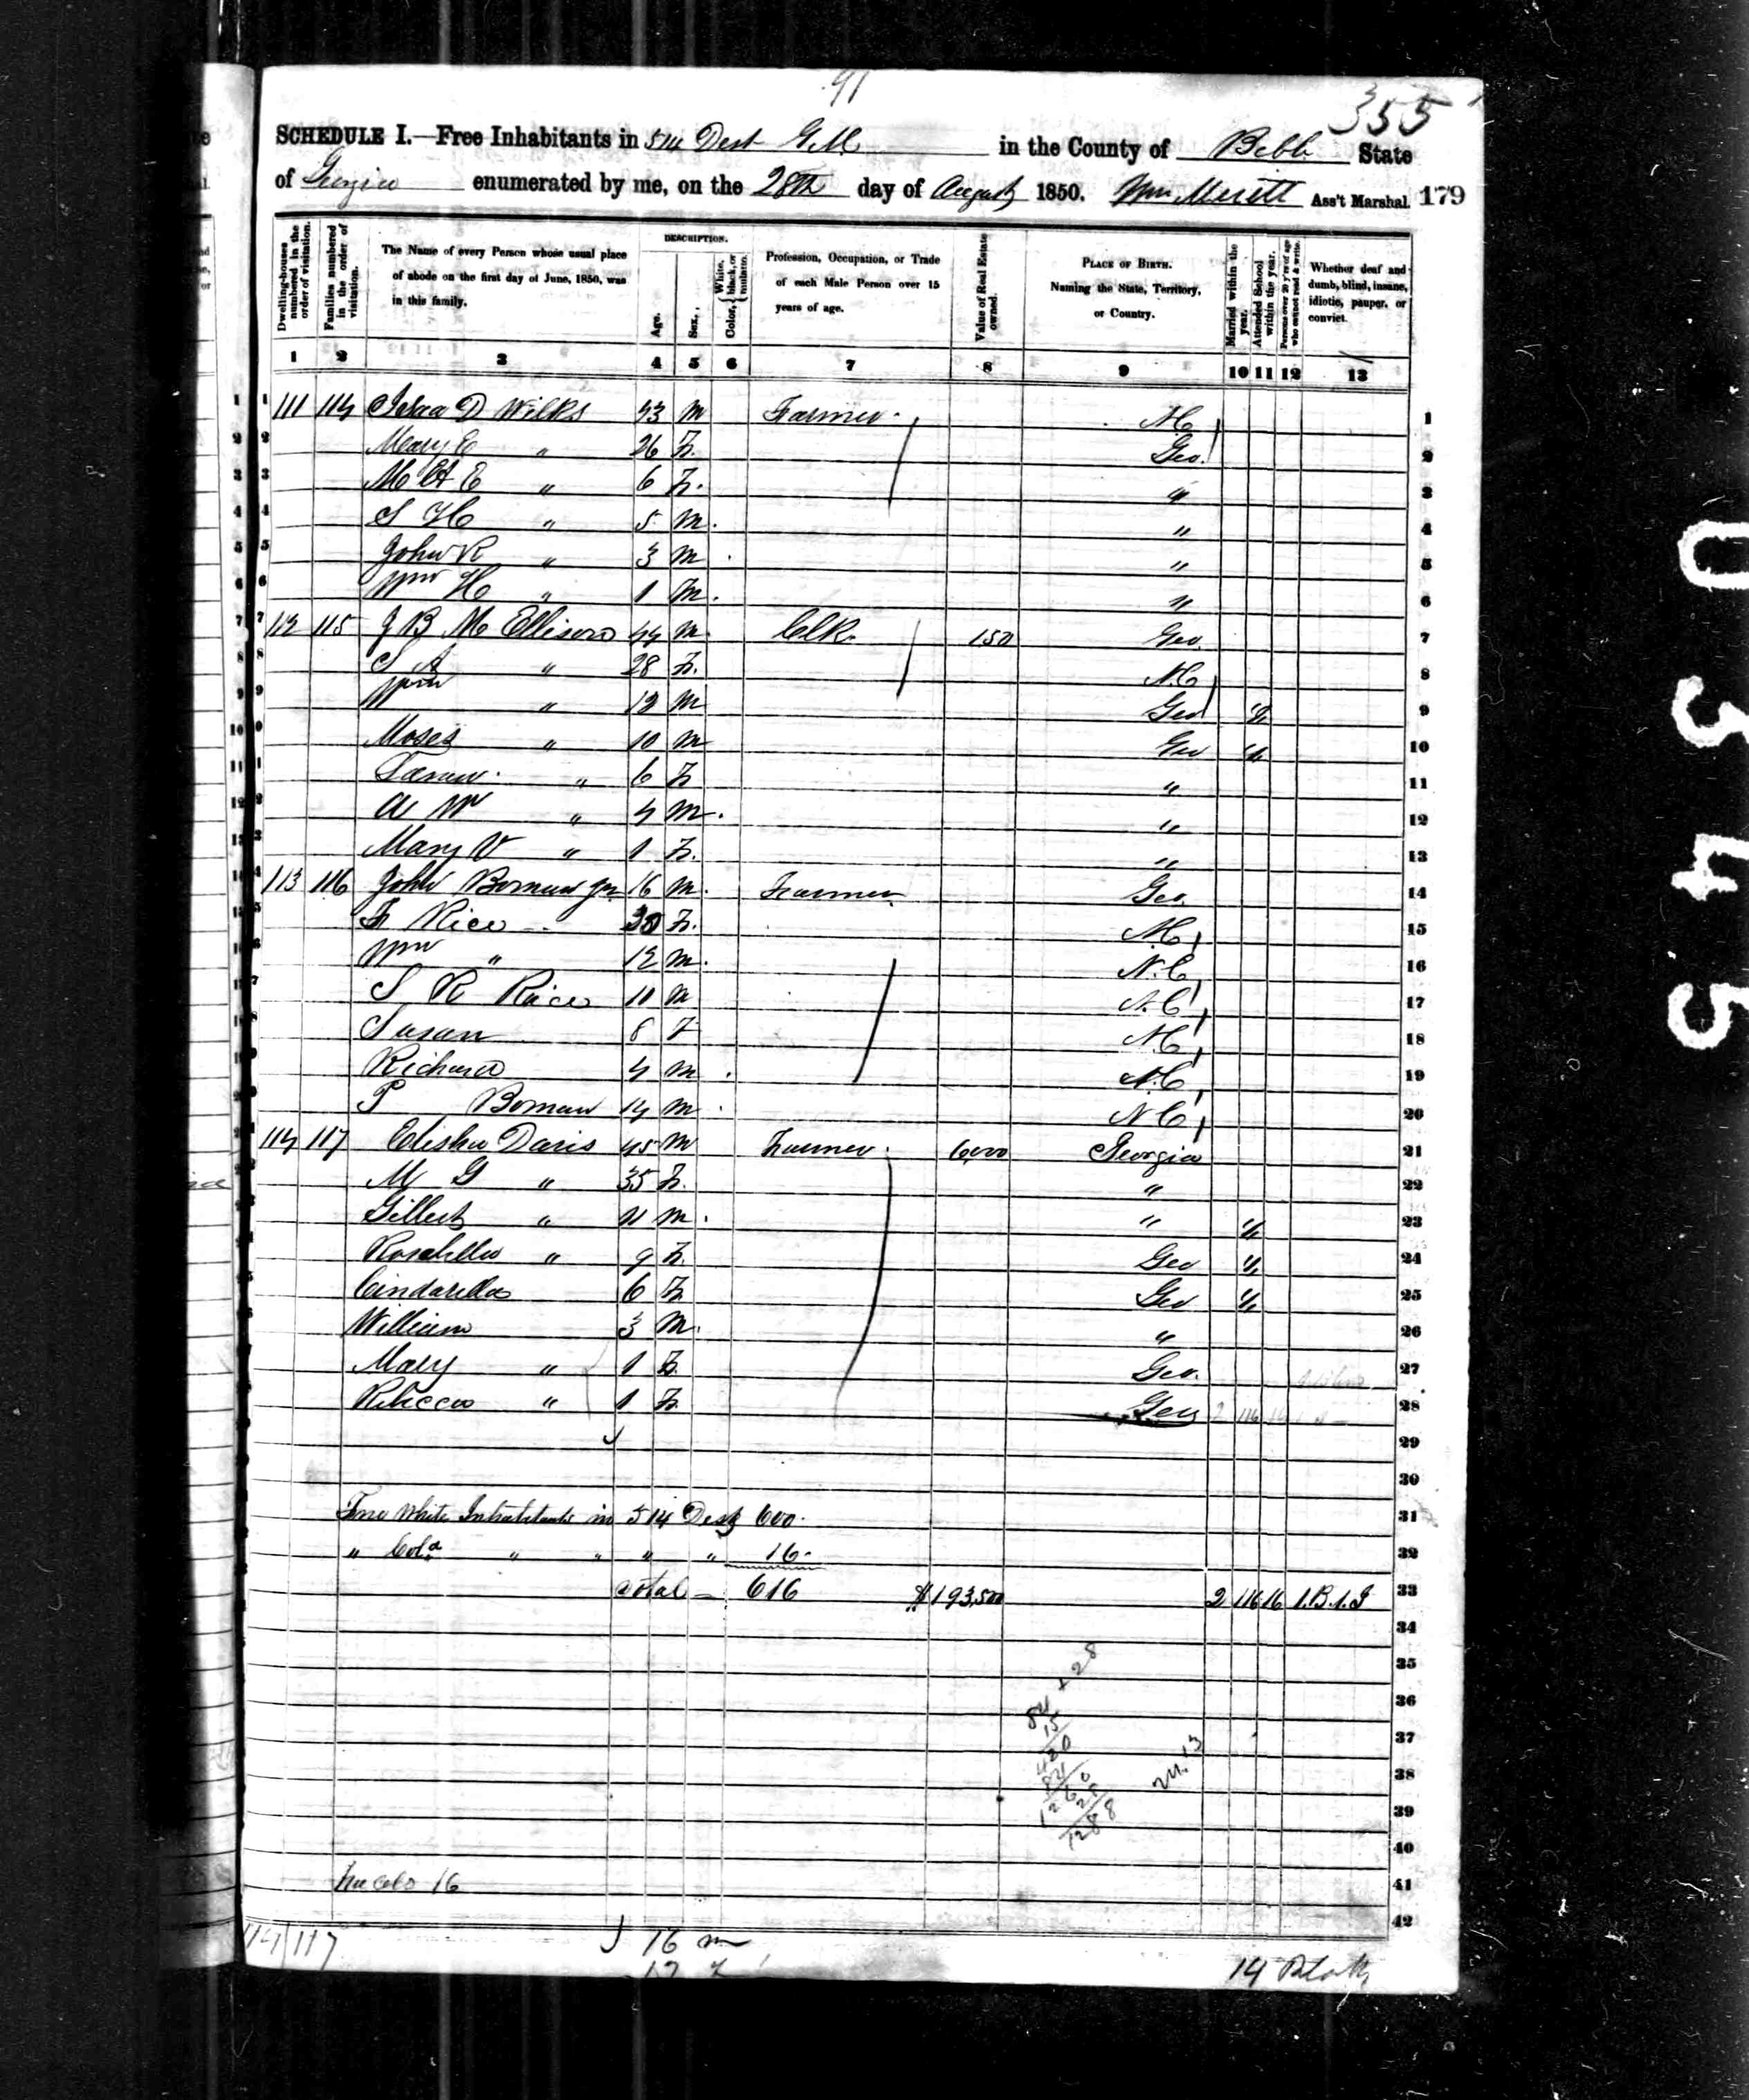 91
355
SCHEDULE I.—Free Inhabitants in 514 Dest G.M. in the County of Bibb State
of Georgia enumerated by me, on the 28th day of August 1850. Wm Meritt Ass't Marshal. 179
Dwelling-houses numbered in the order of visitation.
Families numbered in the order of visitation.
The Name of every Person whose usual place of abode on the first day of June, 1850, was in this family.
DESCRIPTION.
Age.
Sex.
Color, { White, black, or mulatto.
Profession, Occupation, or Trade of each Male Person over 15 years of age.
Value of Real Estate owned.
PLACE OF BIRTH. Naming the State, Territory, or Country.
Married within the year.
Attended School within the year.
Persons over 20 y'rs of age who cannot read & write.
Whether deaf and dumb, blind, insane, idiotic, pauper, or convict.
1 2 3 4 5 6 7 8 9 10 11 12 13
1 111 114 D Wilks 43 M Farmer N.C. 1
2 Mary E " 26 F. Geo. 2
3 M A E " 6 F. " 3
4 S H " 5 M. " 4
5 John R " 3 M " 5
6 Wm H " 1 M. " 6
7 112 115 J B M Ellison 44 M. Clk. 150 Geo. 7
8 S A " 28 F. N.C. 8
9 Wm " 12 M Geo 9
10 Moses " 10 M Geo 10
11 " 6 F " 11
12 A W " 4 M. " 12
13 Mary V " 1 F. " 13
14 113 116 John Boman Jr 16 M. Farmer Geo. 14
15 F Rice 30 F. N.C. 15
16 Wm " 12 M. N.C. 16
17 S R Rice 10 M N.C. 17
18 Susan 8 F N.C. 18
19 Richard 4 M N.C. 19
20 P Boman 14 M N.C. 20
21 114 117 Elisha Davis 45 M Farmer 6,000 Georgia 21
22 M G " 35 F. " 22
23 Gilbert " 11 M. " 23
24 Rosabella " 9 F. Geo 24
25 Cindarella 6 F Geo 25
26 William 3 M. " 26
27 Mary " 1 F. Geo. 27
28 Rebecca " 1 F. Geo 2 116 28
29
30
Free White Inhabitants in 514 Dest 600. 31
" Cold " " " " 16. 32
Total — 616 $193,500 2 116 16 1.B.1.I 33
34
+ 28 35
36
84
15 37
420
84 24.13 38
1260
28 39
1288
40
Free Cold 16 41
42
114 117 16 m
17 F
14 Blank
0345